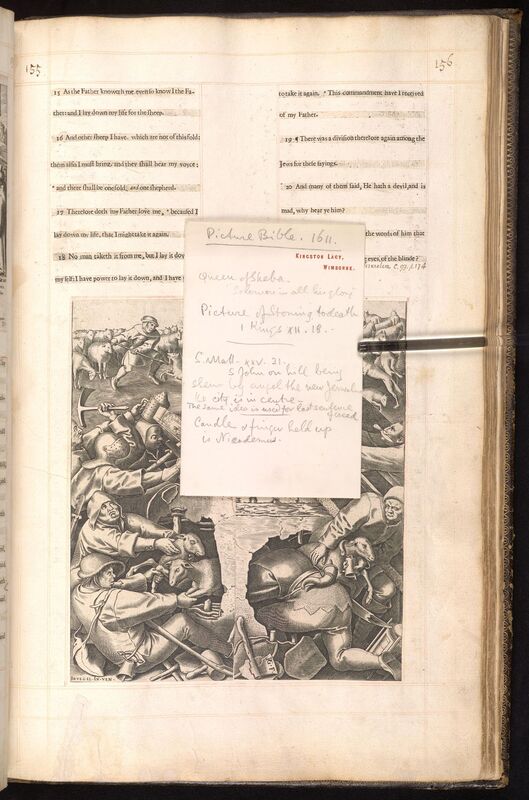 155
156
15 As the Father knoweth me, even so know I the Fa-
ther: and I lay down my life for the sheep.
16 And other sheep I have, which are not of this fold:
them also I must bring, and they shall hear my voyce;
and there shall be one fold, and one shepherd.
17 Therefore doth my Father love me, because I
lay down my life, that I might take it again.
18 No man taketh it from me, but I lay it dow
my self: I have power to lay it down, and I have
to take it again. This commandment have I received
of my Father.
19 ¶ There was a division therefore again among the
Jews for these sayings.
20 And many of them said, He hath a devil, and is
mad, why hear ye him?
the words of him that
eyes of the blinde?
Picture Bible. 1611.
KINGSTON LACY,
WIMBORNE.
Queen of Sheba.
"Solomon in all his glory"
Picture of Stoning to death
1 Kings XII. 18.
S. Matt. XXV. 31.
S John on hill being
shewn by angel the new Jerusalem
the city is in centre
The same idea is used for last sentence
of creed
Candle & finger held up
is Nicodemus.
BRVEGEL IN VEN